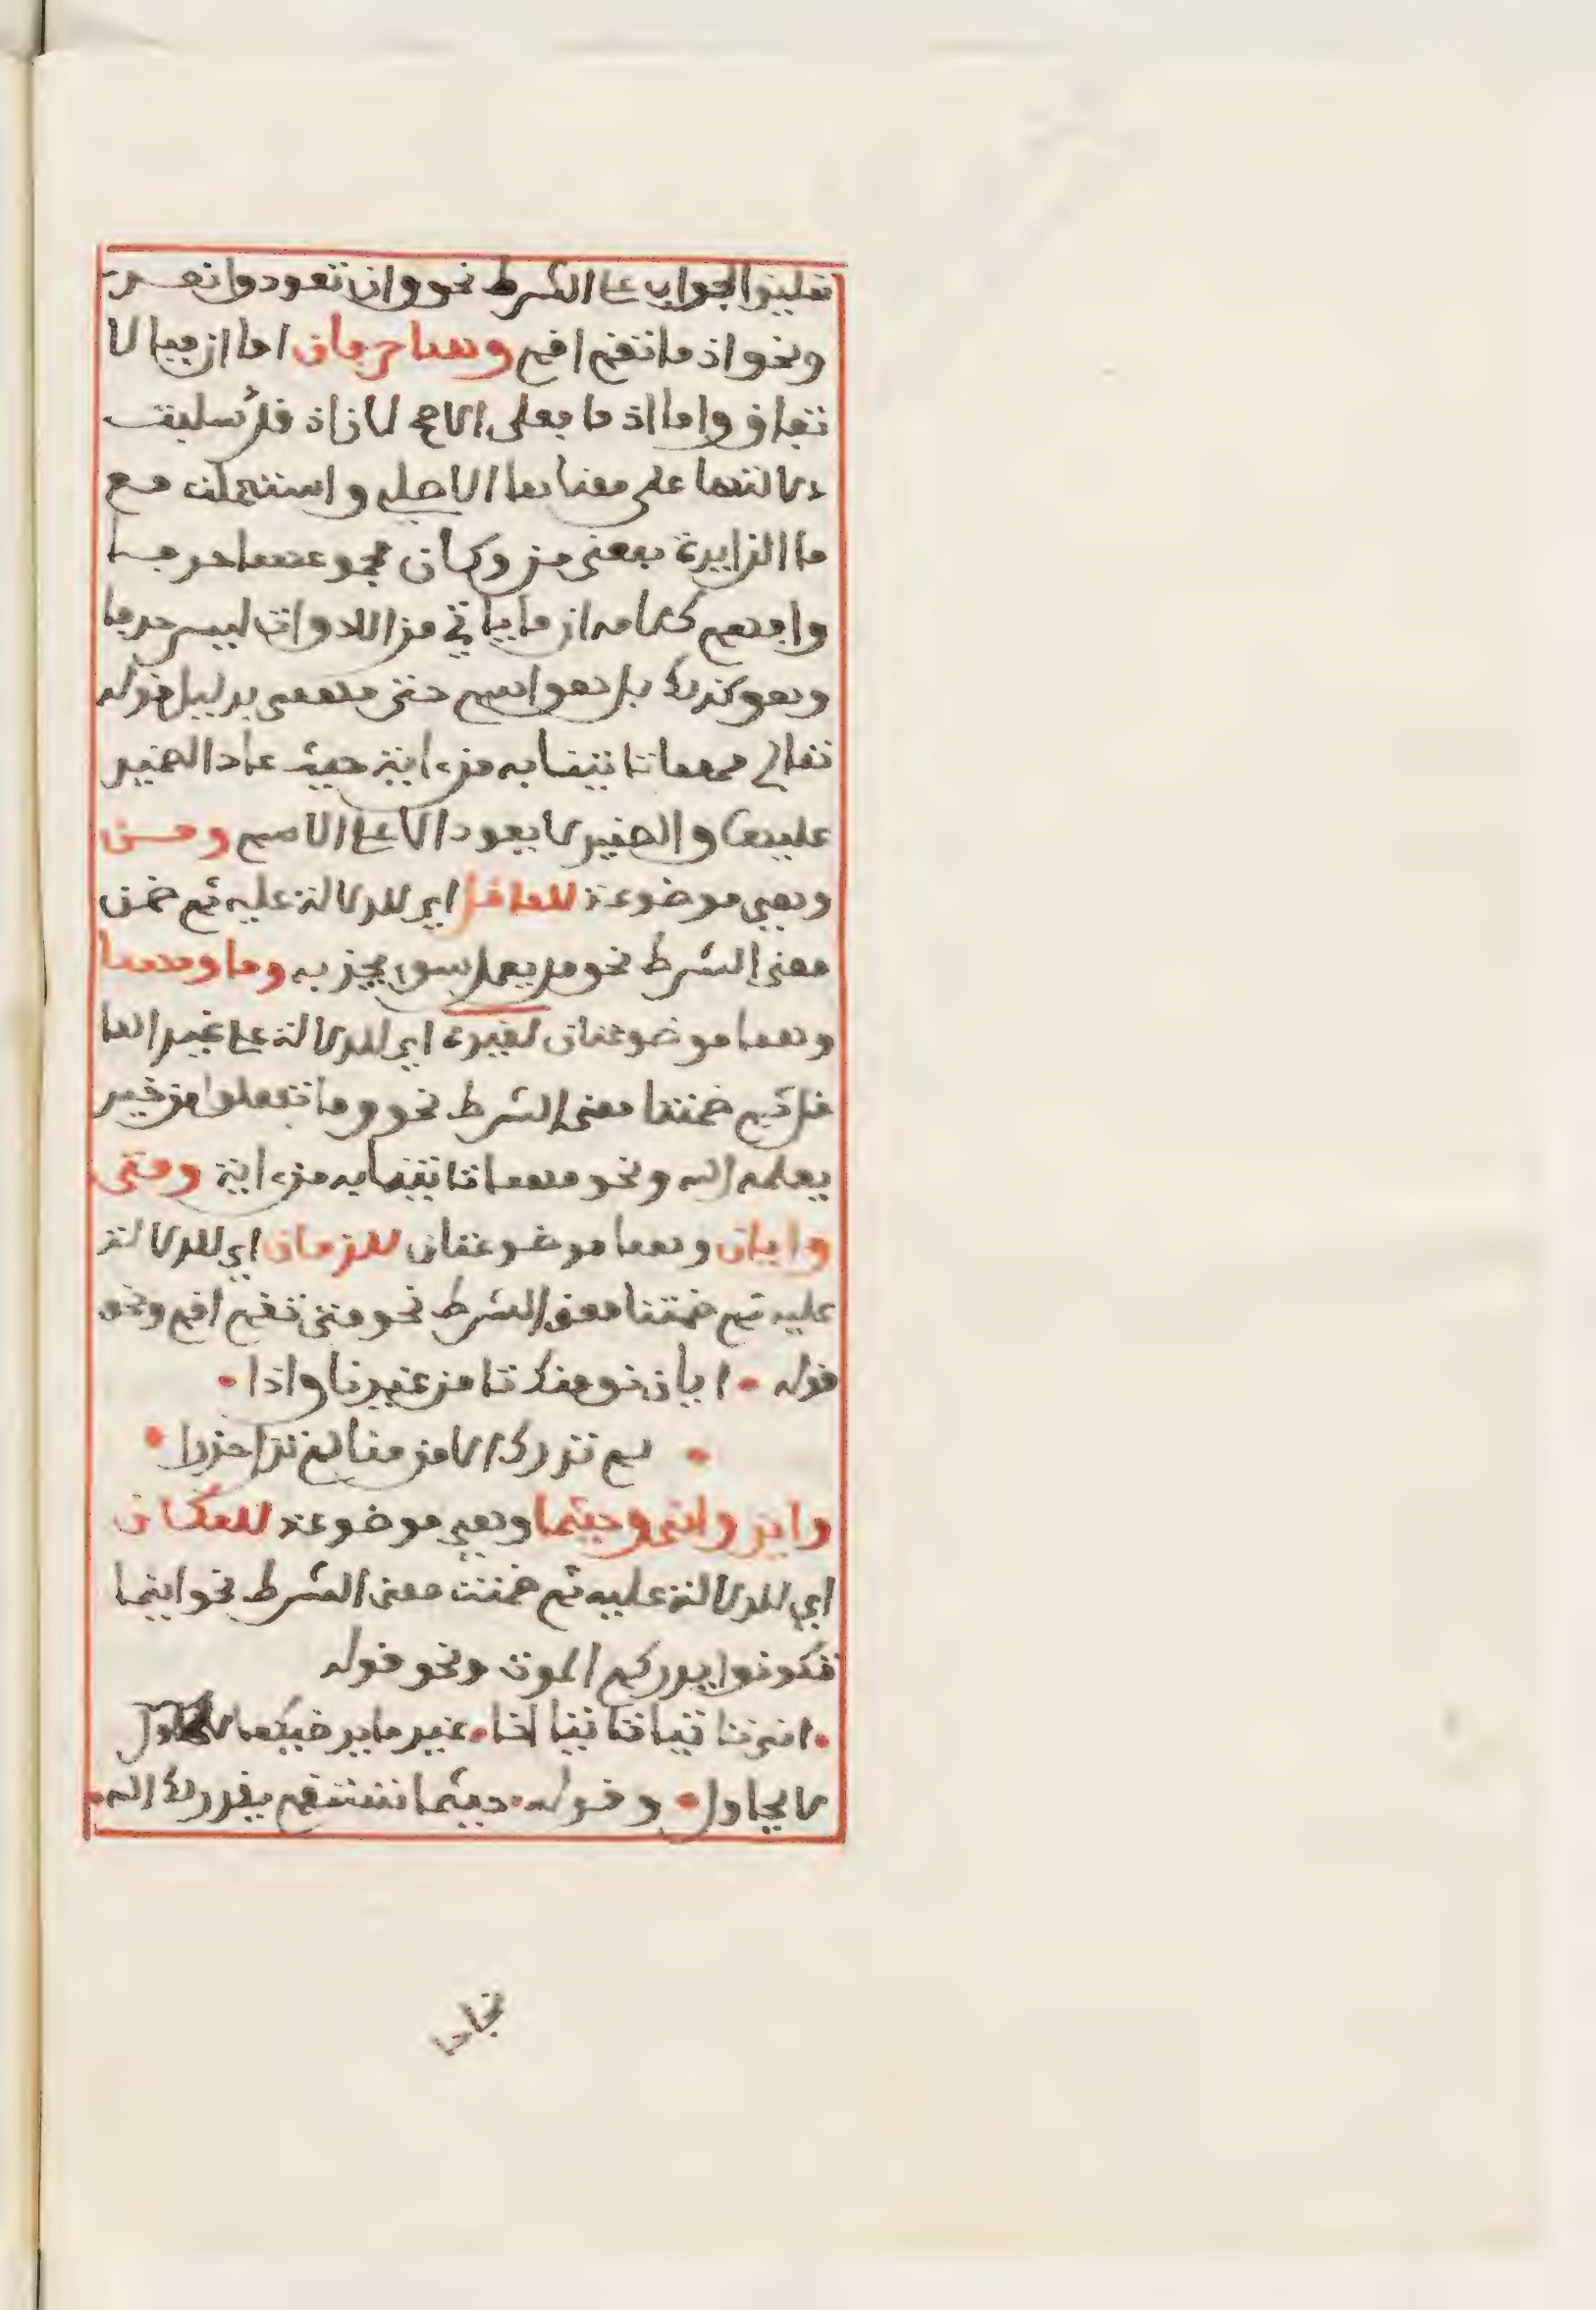 تعليق الجواب على الشرط نحو وان تعودوا نعد
ونحو اذ ما تقم اقم وهما حرفان اما ان فبالا
تفاق واما اذ ما فعلى الاصح لان اذ قد سلبت
دلالتها على معناها الاصلي واستعملت مع
ما الزايدة بمعنى من وكان مجموعهما حرفا
وافهم كلامه ان ما ياتي من الادوات ليس حرفا
وهو كذلك بل هو اسم حتى مهمى بدليل قوله
تعالى مهما تاتنا به من ءاية حيث عاد الضمير
عليها والضمير لا يعود الا على الاسم ومن
وهي موضوعة للعاقل اي للدلالة عليه ثم ضمن
معنى الشرط نحو من يعمل سوء يجز به وما ومهما
وهما موضوعتان لغيره اي للدلالة على غير العا
قل ثم ضمنتا معنى الشرط نحو وما تفعلوا من خير
يعلمه الله ونحو مهما تاتنا به من ءاية ومتى
وايان وهما موضوعتان للزمان اي للدلالة
عليه ثم ضمنتا معنى الشرط نحو متى تقم اقم ونحو
قوله • ايان نومنك تامن غيرنا واذا •
• لم تدرك الامن منا لم تزل حذرا •
واين وانى وحيثما وهي موضوعة للمكان
اي للدلالة عليه ثم ضمنت معنى الشرط نحو اينما
تكونوا يدرككم الموت ونحو قوله
• انى تاتياني تاتيا اخا • غير ما يرضيكما
لا يحاول • وقوله • حيثما تستقم يقدر لك الله •
نجاحا